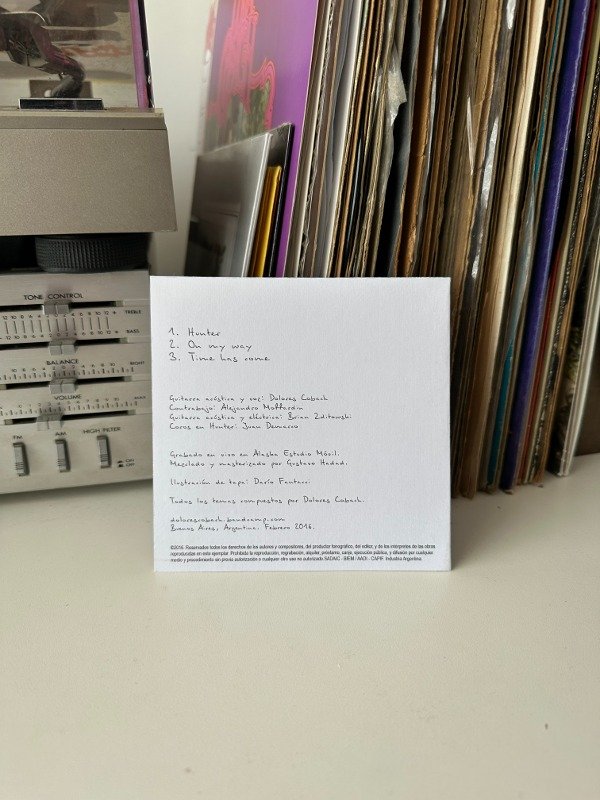 TONE CONTROL
TREBLE
BASS
BALANCE
VOLUME
FM
AM
HIGH FILTER
ON
OFF
1. Hunter
2. On my way
3. Time has come
Guitarra acústica y voz: Dolores Cobach
Contrabajo: Alejandro Maffardin
Guitarra acústica y eléctrica: Brian
Coros en Hunter: Juan Demarco
Grabado en vivo en Alaska Estudio Móvil.
Mezclado y masterizado por Gustavo Hadad.
Ilustración de tapa: Darío Fantacci
Todos los temas compuestos por Dolores Cobach.
dolorescobach.bandcamp.com
Buenos Aires, Argentina. Febrero 2016.
©2016. Reservados todos los derechos de los autores y compositores, del productor fonográfico, del editor, y de los intérpretes de las obras
reproducidas en este ejemplar. Prohibida la reproducción, regrabación, alquiler, préstamo, canje, ejecución pública, y difusión por cualquier
medio y procedimiento sin previa autorización o cualquier otro uso no autorizado SADAIC - BIEM / AADI - CAPIF. Industria Argentina.